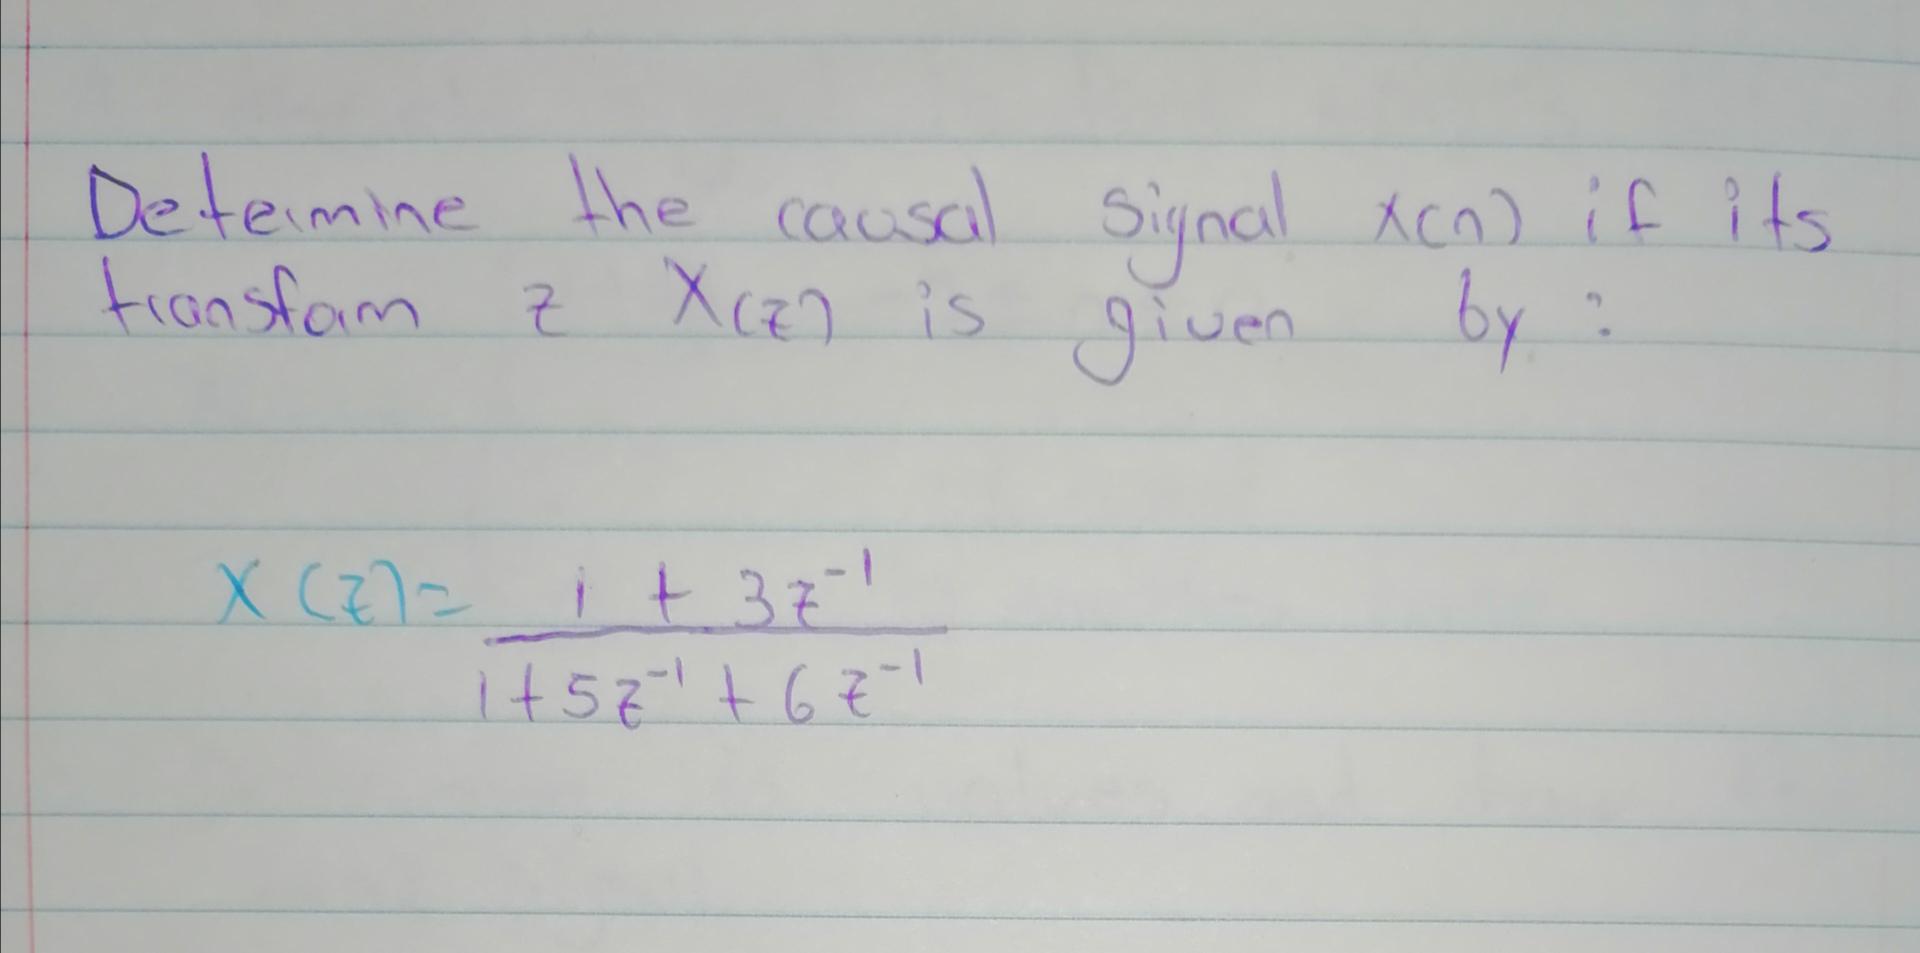 Determine the causal signal x(n) if its
transform z X(z) is given by :
X(z)= 1 + 3z⁻¹
1+5z⁻¹ + 6z⁻¹